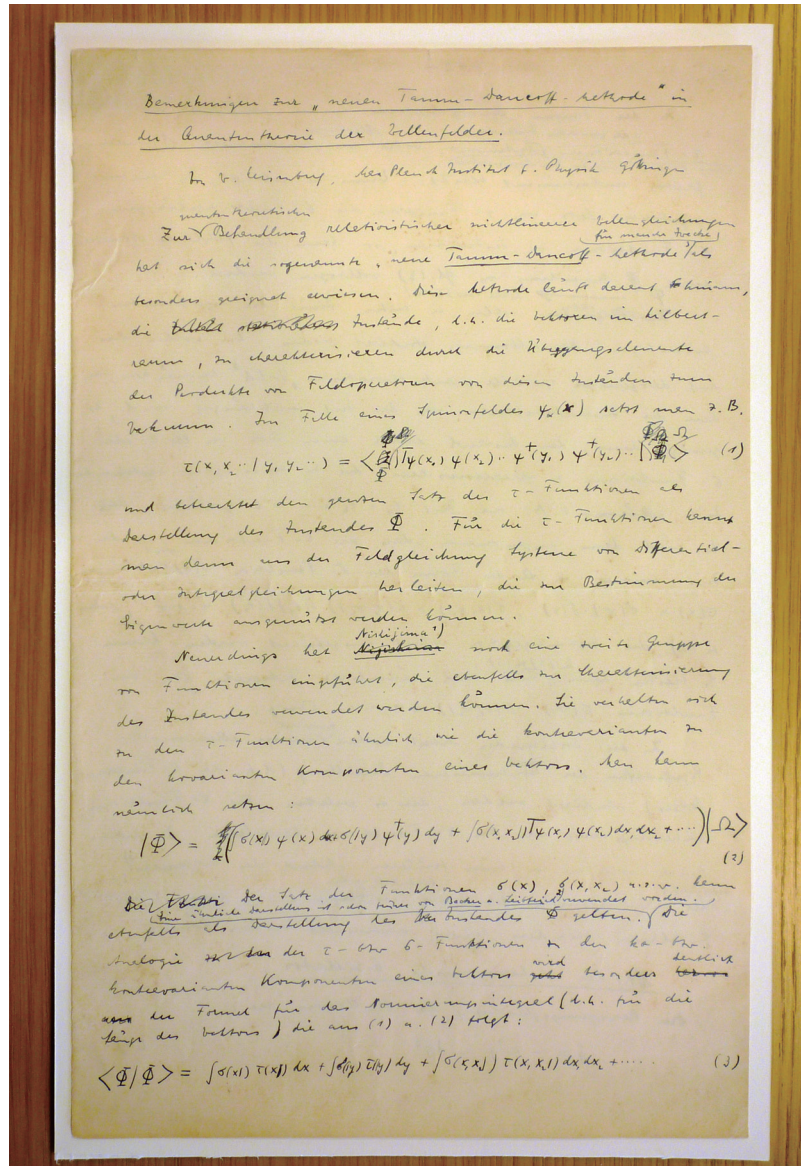 Bemerkungen zur „neuen Tamm-Dancoff-Methode" in
der Quantentheorie der Wellenfelder.
Von W. Heisenberg, Max Planck Institut f. Physik Göttingen
quantentheoretischen
Zur Behandlung relativistischer nichtlinearer Wellengleichungen
für manche Zwecke
hat sich die sogenannte „neue Tamm-Dancoff-Methode" als
besonders geeignet erwiesen. Diese Methode läuft darauf hinaus,
die Zustände, d.h. die Vektoren im Hilbert-
raum, zu charakterisieren durch die Übergangselemente
der Produkte von Feldoperatoren von diesen Zuständen zum
Vakuum. Im Falle eines Spinorfeldes ψ_α(x) setzt man z.B.
τ(x₁ x₂ ·· | y₁ y₂ ··) = < | T ψ(x₁) ψ(x₂) ·· ψ†(y₁) ψ†(y₂) ·· | > (1)
und betrachtet den ganzen Satz der τ-Funktionen als
Darstellung des Zustandes Φ. Für die τ-Funktionen kann
man dann aus der Feldgleichung Systeme von Differential-
oder Integralgleichungen herleiten, die zur Bestimmung der
Eigenwerte ausgenützt werden können.
Nishijima¹)
Neuerdings hat noch eine zweite Gruppe
von Funktionen eingeführt, die ebenfalls zur Charakterisierung
des Zustandes verwendet werden können. Sie verhalten sich
zu den τ-Funktionen ähnlich wie die kontravarianten zu
den kovarianten Komponenten eines Vektors. Man kann
nämlich setzen:
|Φ> = (∫σ(x|) ψ(x) dx + σ(|y) ψ†(y) dy + ∫σ(x₁x₂|) T ψ(x₁) ψ(x₂) dx₁ dx₂ + ····) |Ω>
(2)
Der Satz der Funktionen σ(x), σ(x₁ x₂) u.s.w. kann
Eine ähnliche Darstellung ist schon früher von verwendet worden.
ebenfalls als Darstellung des Zustandes Φ gelten. Die
Analogie der τ- bzw σ-Funktionen zu den ko- bzw.
wird deutlich
kontravarianten Komponenten eines Vektors besonders
der Formel für das Normierungsintegral (d.h. für die
Länge des Vektors) die aus (1) u. (2) folgt:
<Φ|Φ> = ∫σ(x|) τ(x|) dx + ∫σ(|y) τ(|y) dy + ∫σ(x₁x₂|) τ(x₁x₂|) dx₁ dx₂ + ····· (3)